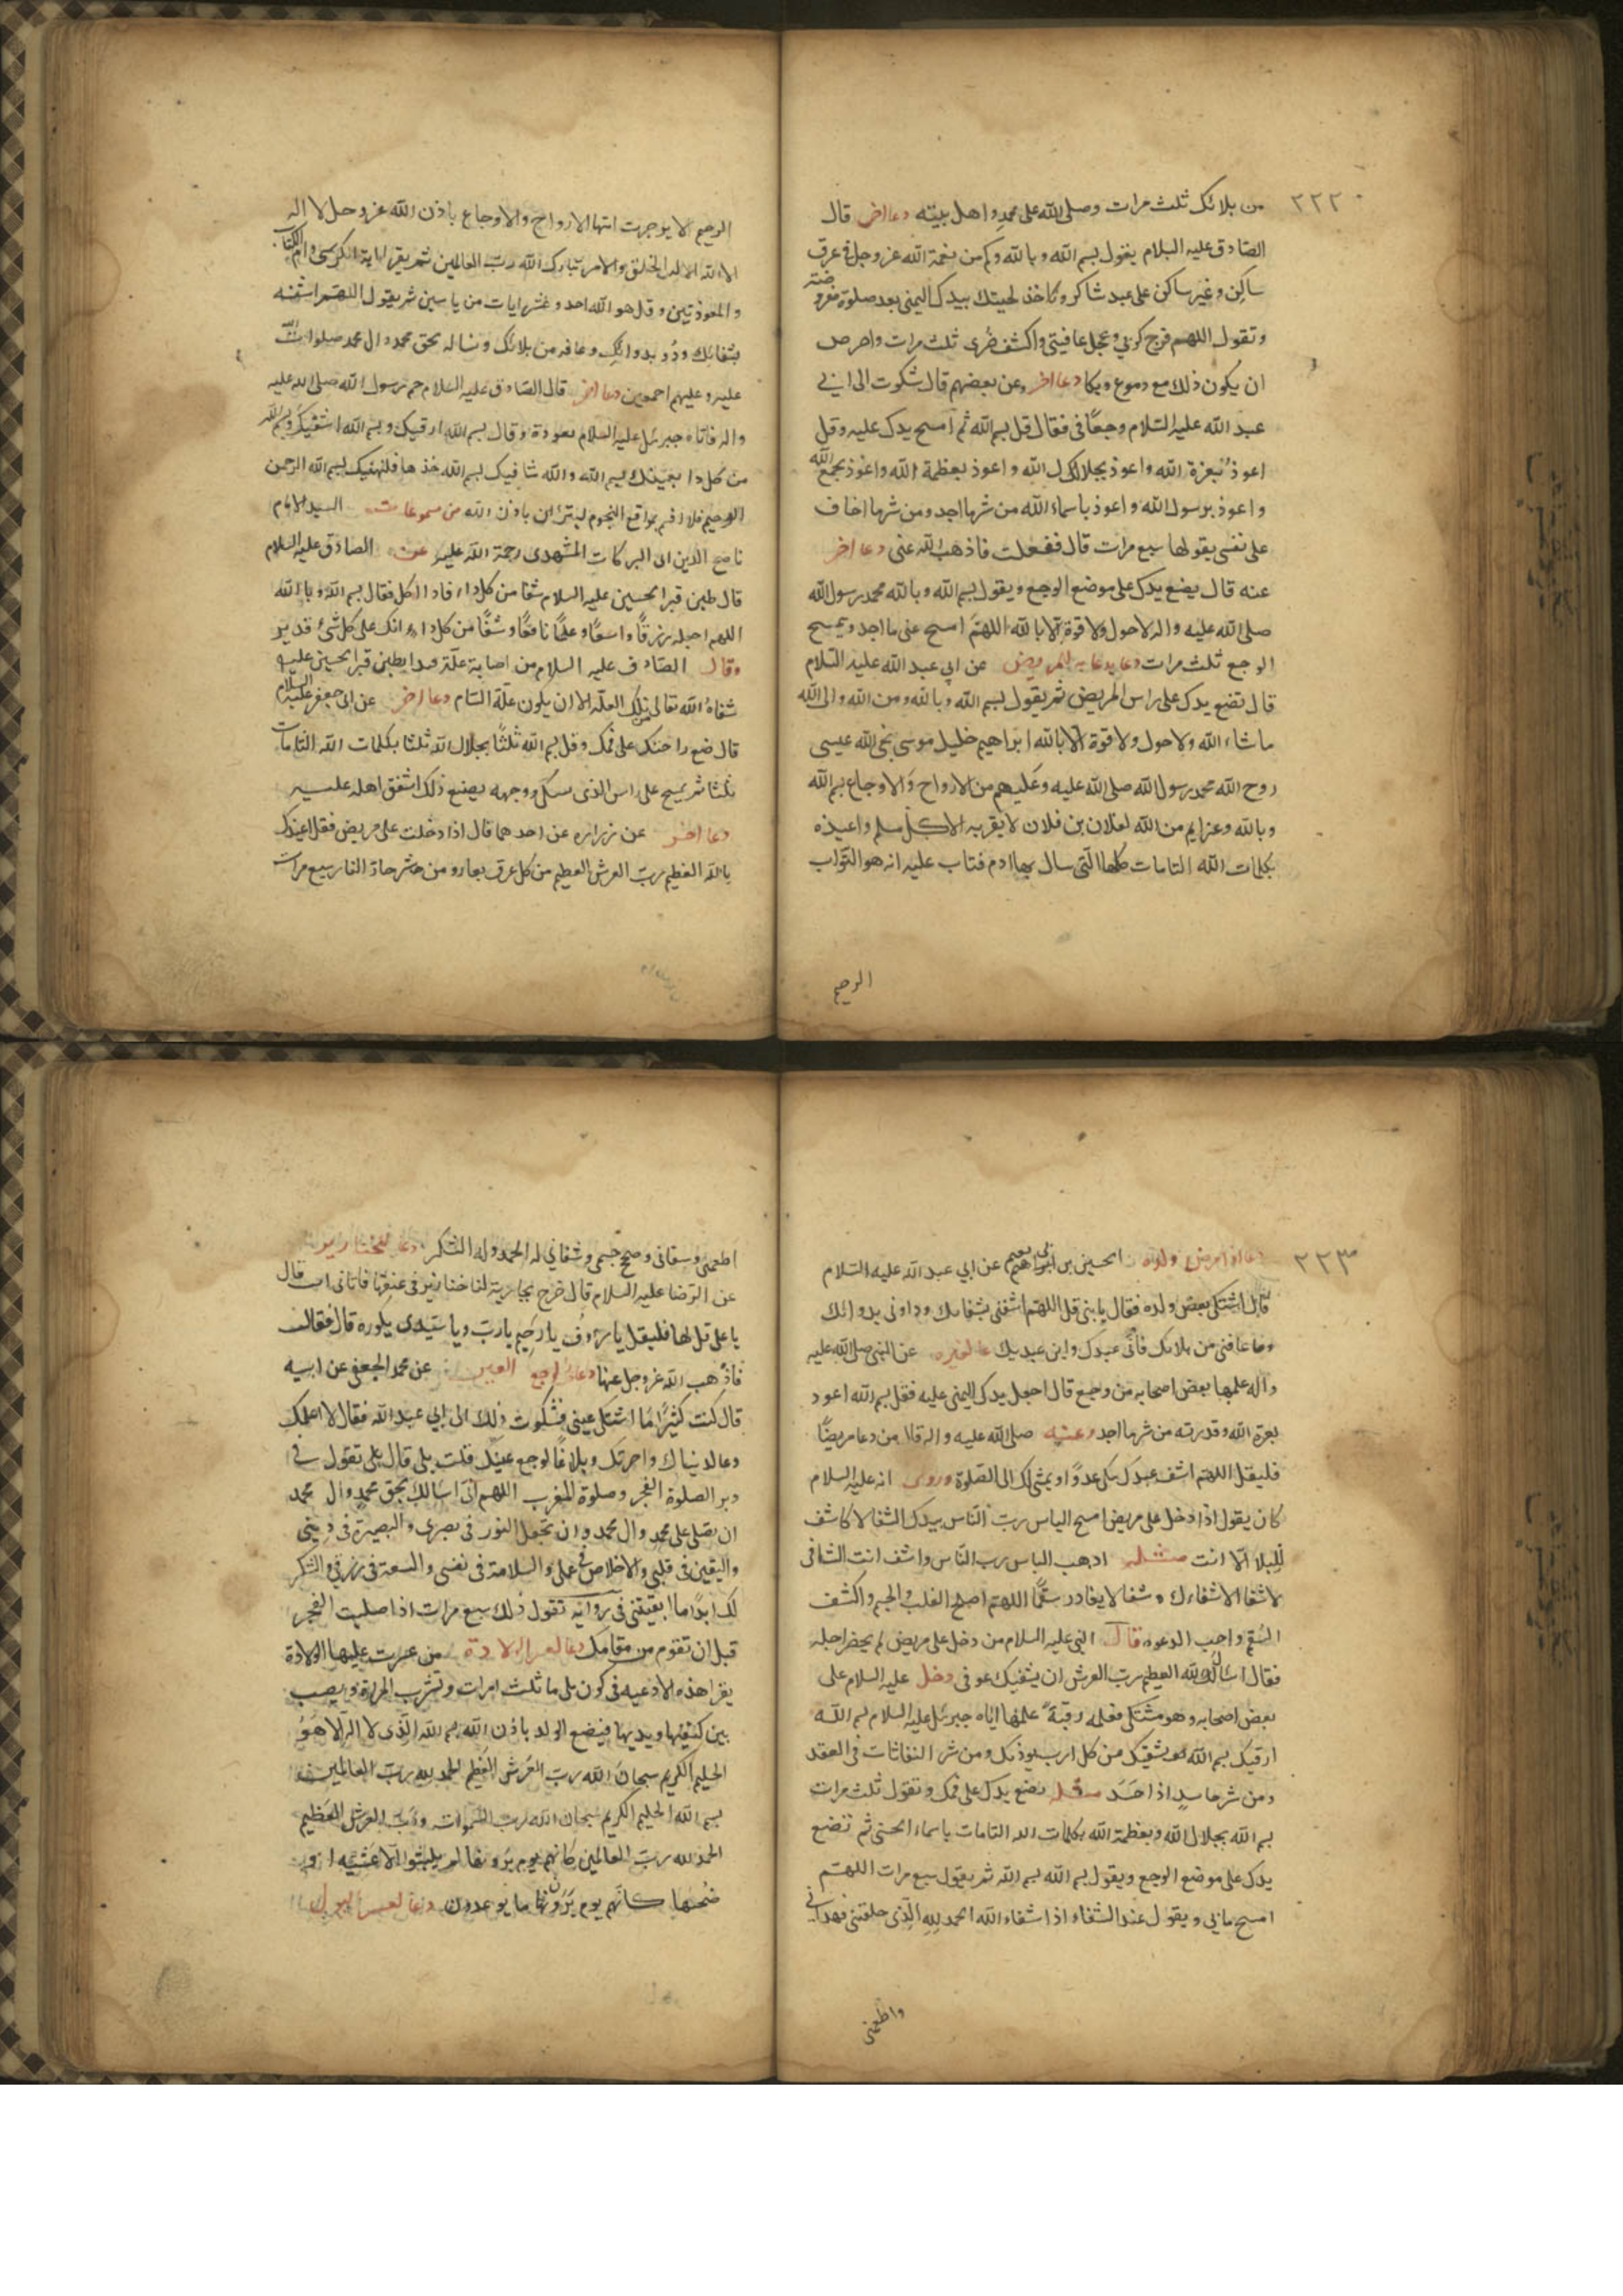 ٢٢٢
من بلائك ثلث مرات وصلى الله على محمد واهل بيته دعا اخر قال
الصادق عليه السلام يقول بسم الله وبالله وكم من نعمة الله عز وجل في عرق
ساكن وغير ساكن على عبد شاكر وتاخذ لحيتك بيدك اليمنى بعد صلوة مفروضته
وتقول اللهم فرج كربي وعجل عافيتي واكشف ضري ثلث مرات واحرص
ان يكون ذلك مع دموع وبكا دعا اخر وعن بعضهم قال شكوت الى ابي
عبد الله عليه السلام وجعًا في فقال قل بسم الله ثم امسح يدك عليه وقل
اعوذ بعزة الله واعوذ بجلال الله واعوذ بعظمة الله واعوذ بجمع الله
واعوذ برسول الله واعوذ باسماء الله من شر ما اجد ومن شر ما اخاف
على نفسي يقولها سبع مرات قال ففعلت فاذهب الله عني دعا اخر
عنه قال يضع يدك على موضع الوجع ويقول بسم الله وبالله محمد رسول الله
صلى الله عليه واله لاحول ولا قوة الا بالله اللهم امسح عني ما اجد ويمسح
الوجع ثلث مرات دعا يدعا به للمريض عن ابي عبد الله عليه السلام
قال تضع يدك على راس المريض ثم يقول بسم الله وبالله ومن الله والى الله
ما شاء الله ولا حول ولا قوة الا بالله ابراهيم خليل موسى نجي الله عيسى
روح الله محمد رسول الله صلى الله عليه وعليهم من الارواح والاوجاع بسم الله
وبالله وعزايم من الله لفلان بن فلان لا يقربه الا كل مسلم واعيذه
بكلمات الله التامات كلها التي سال بها ادم فتاب عليه انه هو التواب
الرحيم
الرحيم الا يوجرت انتها الارواح والاوجاع باذن الله عز وجل لا اله
الا الله الا له الخلق والامر تبارك الله رب العالمين ثم يقر اية الكرسي وام الكتاب
والمعوذتين وقل هو الله احد وعشر ايات من ياسين ثم يقول اللهم اشفه
بشفائك ودو بدوائك وعافه من بلائك ونساله بحق محمد وال محمد صلوات الله
عليه وعليهم اجمعين دعا اخر قال الصادق عليه السلام حم رسول الله صلى الله عليه
واله فاتاه جبرئيل عليه السلام بعوذة وقال بسم الله ارقيك وبسم الله اشفيك وبسم الله
من كل دا بعينك بسم الله والله شافيك بسم الله خذها فلتهنيك بسم الله الرحمن
الرحيم فلا اقسم بمواقع النجوم لتبرئن باذن الله من مسموعات السيد الامام
ناصح الدين ابي البركات المشهدي رحمة الله عليه عن الصادق عليه السلام
قال طين قبر الحسين عليه السلام شفا من كل داء فاذا اكل فقال بسم الله وبالله
اللهم اجعله رزقًا واسعًا وعلمًا نافعًا وشفًا من كل داء انك على كل شئ قدير
وقال الصادق عليه السلام من اصابة علة فبدا بطين قبر الحسين عليه السلام
شفاه الله تعالى من تلك العلة الا ان يكون علة السام دعا اخر عن ابي جعفر عليه السلام
قال ضع راحتك على فمك وقل بسم الله ثلثًا بجلال الله ثلثا بكلمات الله التامات
ثلثا ثم يمسح على راس الذي يشكل ووجهه يصنع ذلك اشفق اهله عليه
دعا اخر عن زراره عن احدهما قال اذا دخلت على مريض فقل اعيذك
بالله العظيم رب العرش العظيم من كل عرق نعار ومن شر حار النار سبع مرات
٢٢٣
دعا اذا مرض ولده الحسين بن ابي نعيم عن ابي عبد الله عليه السلام
قال اشتكى بعض ولده فقال يا بني قل اللهم اشفني بشفائك وداوني بدوائك
وعافني من بلائك فاني عبدك وابن عبديك دعا لغيره عن النبي صلى الله عليه
واله علمها بعض اصحابه من وجع قال اجعل يدك اليمنى عليه فقل بسم الله اعوذ
بعزة الله وقدرته من شر ما اجد وعنه صلى الله عليه واله قال من دعا مريضًا
فليقل اللهم اشف عبدك ينكى عدوًا او يمشي لك الى الصلوة وروى انه عليه السلام
كان يقول اذا دخل على مريض امسح الباس رب الناس بيدك الشفا لا كاشف
للبلا الا انت مثله اذهب الباس رب الناس واشف انت الشافي
لا شفا الا شفاءك شفا لا يغادر سقمًا اللهم اصلح القلب والجسم واكشف
السقم واجب الدعوه قال النبي عليه السلام من دخل على مريض لم يحضر اجله
فقال اسال الله العظيم رب العرش ان يشفيك عوفي دخل عليه السلام على
بعض اصحابه وهو مشتكي فعلمه رقية علمها اياه جبرئيل عليه السلام بسم الله
ارقيك بسم الله يشفيك من كل ارب يوذيك ومن شر النفاثات في العقد
ومن شر حاسد اذا حسد مثله يضع يدك على فمك وتقول ثلث مرات
بسم الله بجلال الله وبعظمة الله بكلمات الله التامات باسماء الحسنى ثم تضع
يدك على موضع الوجع ويقول بسم الله بسم الله ثم يقول سبع مرات اللهم
امسح ما بي ويقول عند الشفاء اذا شفاء الله الحمد لله الذي خلقني فهداني
واطعمني
اطعمني وسقاني وصحح جسمي وشفاني له الحمد وله الشكر دعا للخنازير
عن الرضا عليه السلام قال خرج بجارية لنا خنازير في عنقها فاتاني ات قال
يا علي قل لها فليقل يا رؤوف يا رحيم يا رب ويا سيدي يكوره قال فقالت
فاذهب الله عز وجل عنها دعا لوجع العين عن محمد الجعفي عن ابيه
قال كنت كثيرًا ما اشتكي عيني فشكوت ذلك الى ابي عبد الله فقال لا اعلمك
دعا لدنياك واخرتك وبلاغًا لوجع عينك قلت بلى قال بلى تقول في
دبر الصلوة الفجر وصلوة المغرب اللهم اني اسالك بحق محمد وال محمد
ان تصلي على محمد وال محمد وان تجعل النور في بصري والبصيرة في ديني
واليقين في قلبي والاخلاص في عملي والسلامة في نفسي والسعة في رزقي والشكر
لك ابدًا ما ابقيتني في روايه تقول ذلك سبع مرات اذا صليت الفجر
قبل ان تقوم من مقامك دعا لعسر الولادة من عسرت عليها الولادة
يقرا هذه الادعيه في كوز ملى ما ثلث مرات وتشرب المراة ويصب
بين كتفيها ويديها فيضع الولد باذن الله بسم الله الذي لا اله الا هو
الحليم الكريم سبحان الله رب العرش العظيم الحمد لله رب العالمين
بسم الله الحليم الكريم سبحان الله رب السموات ورب العرش العظيم
الحمد لله رب العالمين كانهم يوم يرونها لم يلبثوا الا عشية او
ضحيها كانهم يوم يرون ما يوعدون دعا لعسر البول